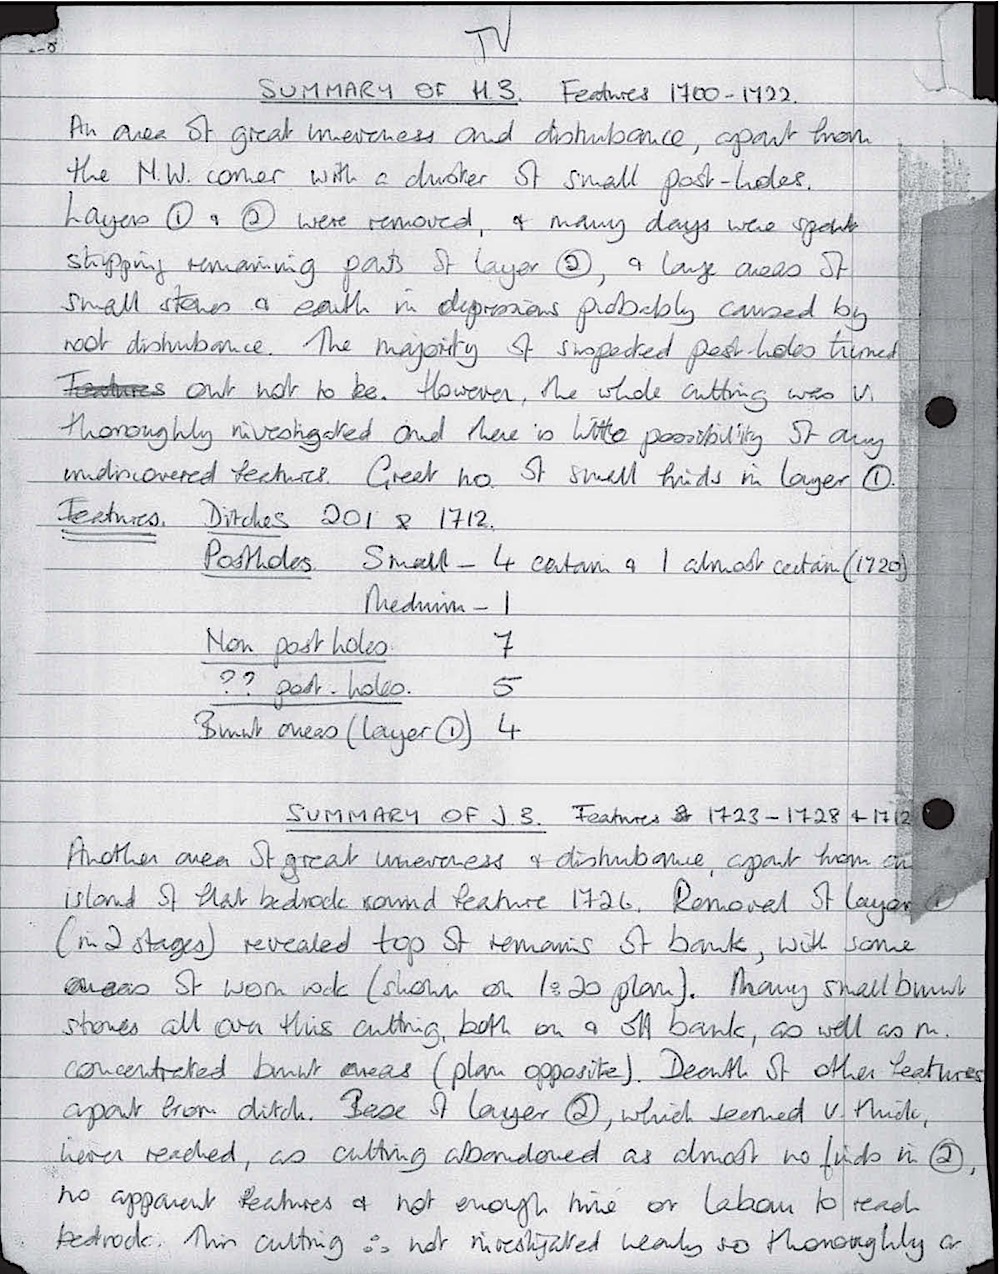 IV
SUMMARY OF H.3. Features 1700-1722.
An area of great unevenness and disturbance, apart from
the N.W. corner with a cluster of small post-holes.
Layers ① & ② were removed, & many days were spent
stripping remaining parts of layer ②, & large areas of
small stones & earth in depressions probably caused by
root disturbance. The majority of suspected post-holes turned
Features out not to be. However, the whole cutting was v.
thoroughly investigated and there is little possibility of any
undiscovered features. Great no. of small finds in layer ①.
Features. Ditches 201 & 1712.
Postholes Small - 4 certain & 1 almost certain (1720)
Medium - 1
Non post holes 7
?? post-holes. 5
Burnt areas (layer ①) 4
SUMMARY OF J3. Features 1723-1728 + 1712
Another area of great unevenness & disturbance, apart from an
island of flat bedrock round feature 1726. Removal of layer ①
(in 2 stages) revealed top of remains of bank, with some
areas of worn rock (shown on 1:20 plan). Many small burnt
stones all over this cutting, both on & off bank, as well as in
concentrated burnt areas (plan opposite). Dearth of other features
apart from ditch. Base of layer ②, which seemed v. thick,
never reached, as cutting abandoned as almost no finds in ②,
no apparent features & not enough time or labour to reach
bedrock. This cutting ∴ not investigated nearly so thoroughly as